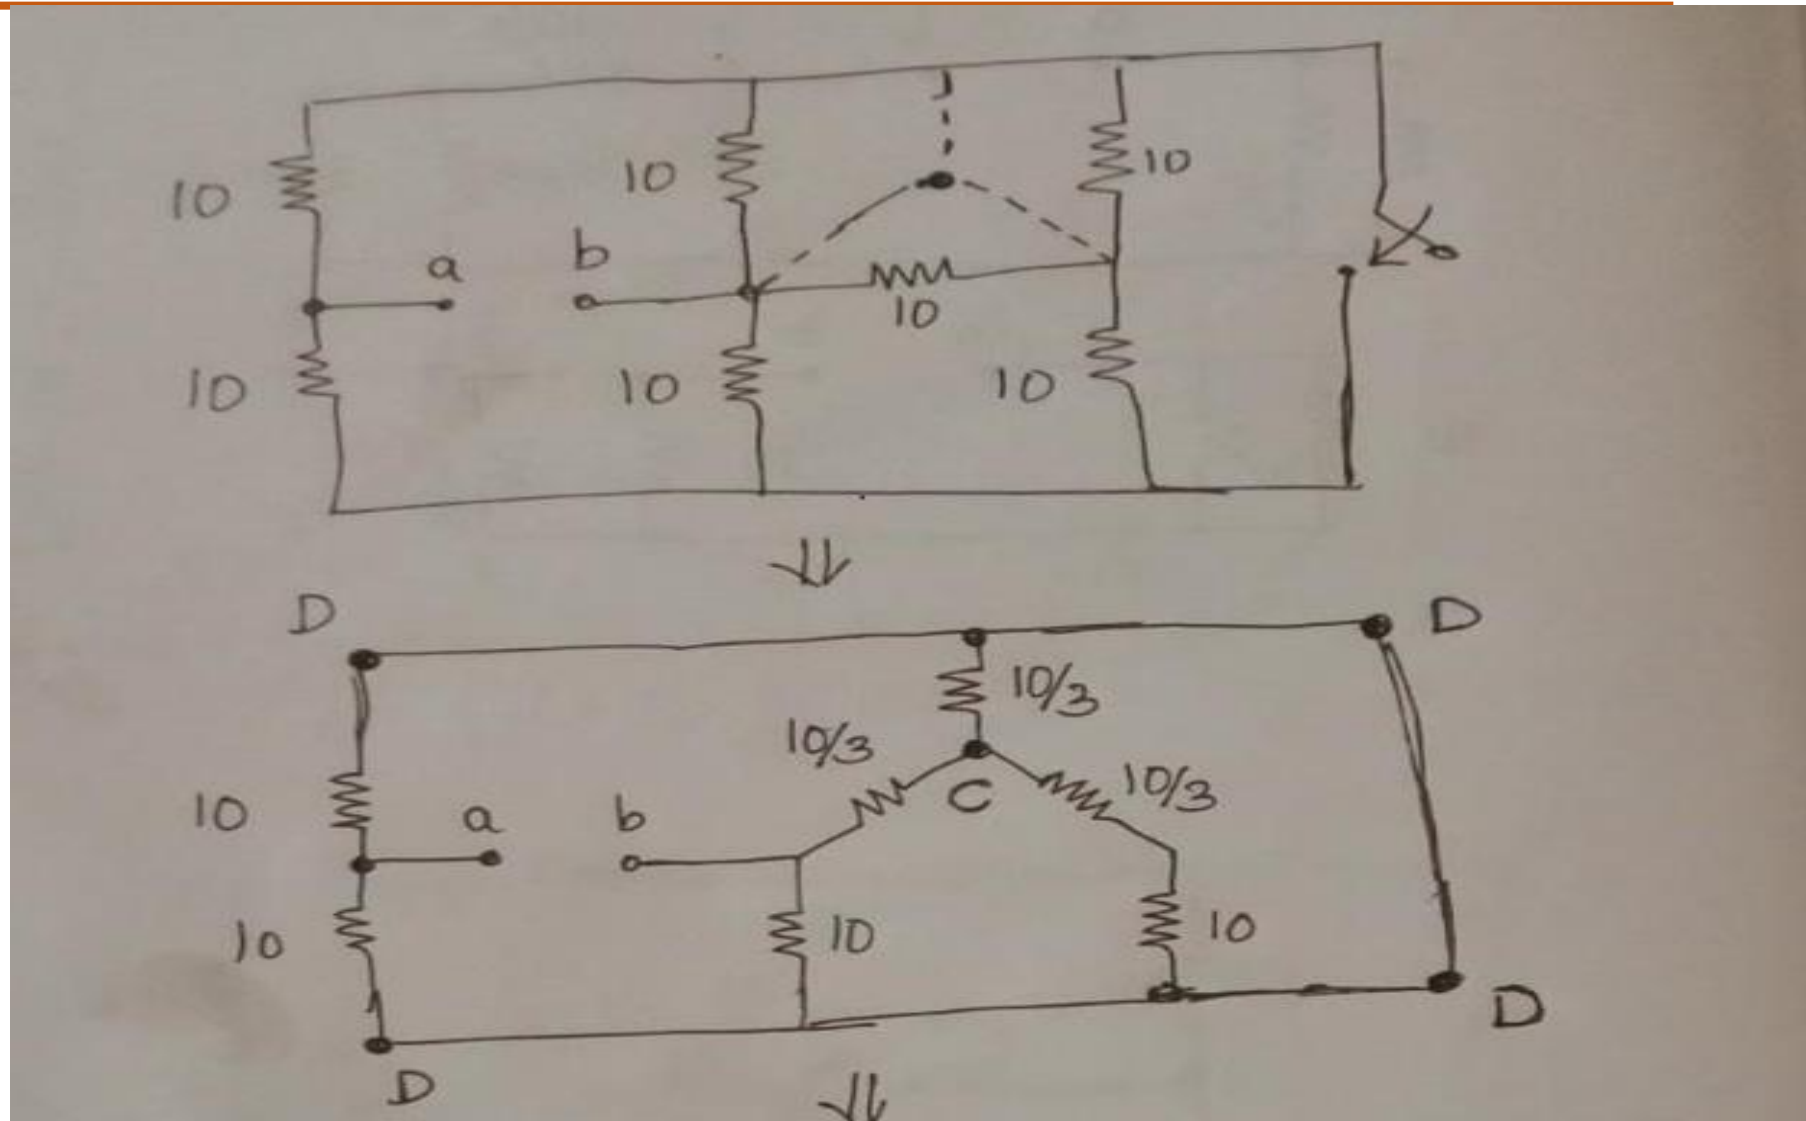 10
10
10
a
b
10
10
10
10
⇓
D
D
10/3
10/3
10/3
C
10
a
b
10
10
10
D
D
⇓